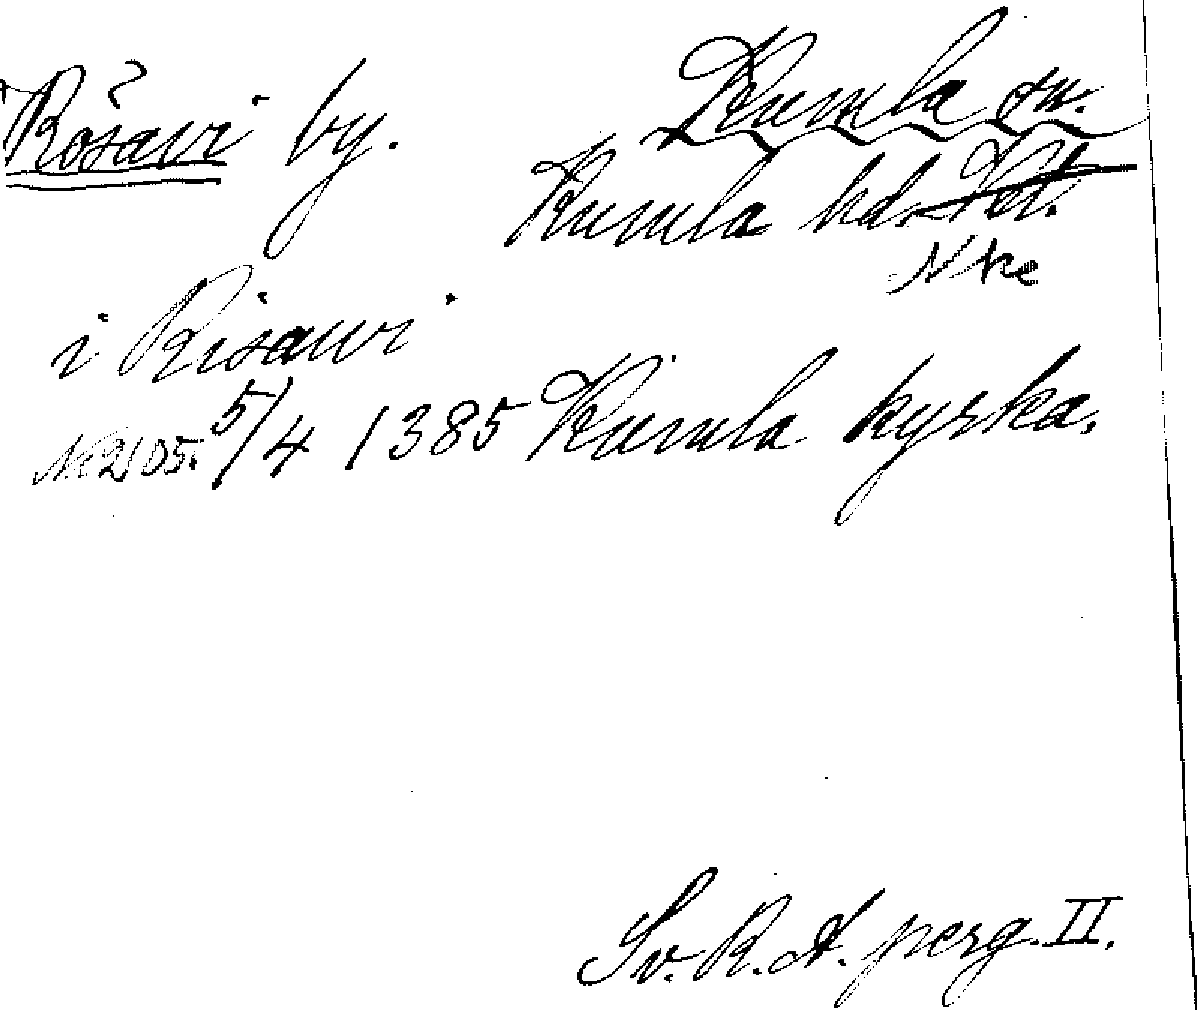 Rösavi by.
Kumla sn.
Kumla hd. Vst.
Nke
i Risawi
Nr 2105. 5/4 1385 Kumla kyrka.
Sv. R. A. perg. II.